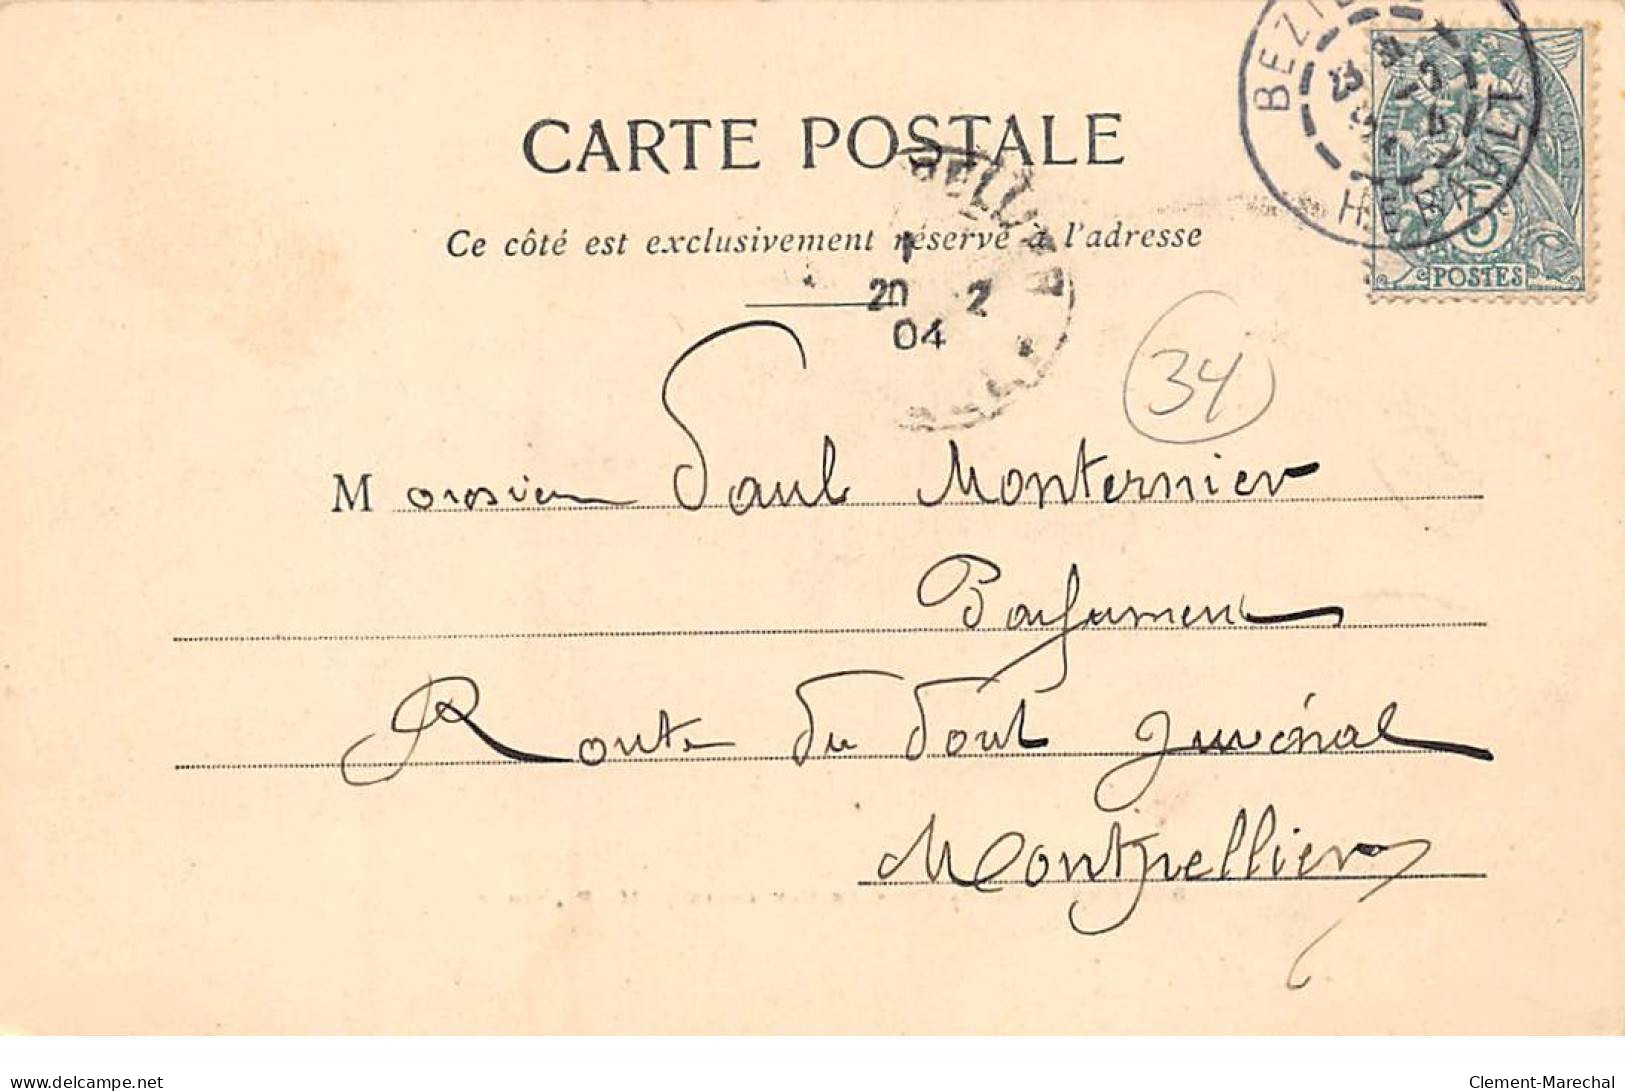 CARTE POSTALE
Ce côté est exclusivement réservé à l'adresse
HERAULT
POSTES
5
20 2
04
34
Monsieur Paul Monternier
Parfumeur
Route du Pont Juvénal
Montpellier
delcampe.net
Clement-Marechal